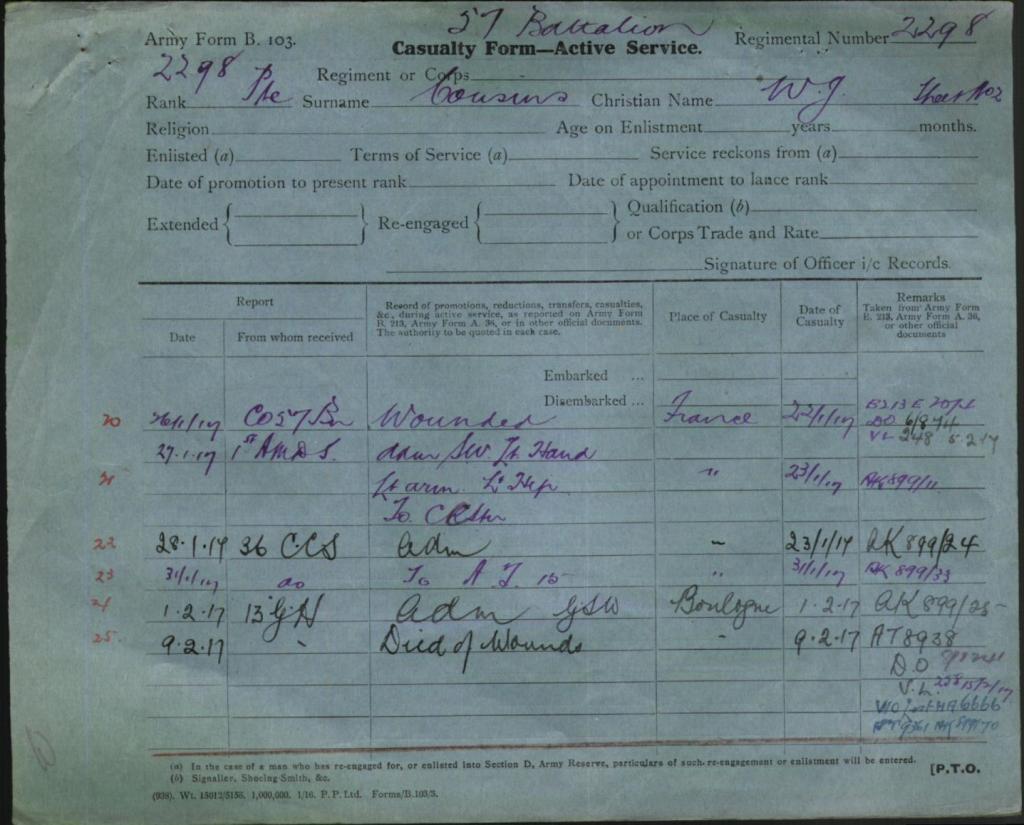 57 Battalion
Army Form B. 103.
Casualty Form—Active Service.
Regimental Number 2298
2298
Regiment or Corps
Rank Pte Surname Cousins Christian Name W. J. Sheet No 2
Religion Age on Enlistment years months.
Enlisted (a) Terms of Service (a) Service reckons from (a)
Date of promotion to present rank Date of appointment to lance rank
Extended Re-engaged Qualification (b)
or Corps Trade and Rate
Signature of Officer i/c Records.
Report
Date From whom received
Record of promotions, reductions, transfers, casualties,
&c., during active service, as reported on Army Form
B. 213, Army Form A. 36, or in other official documents.
The authority to be quoted in each case.
Place of Casualty
Date of
Casualty
Remarks
Taken from Army Form
B. 213, Army Form A. 36,
or other official
documents
Embarked ...
Disembarked ...
20 26/1/17 CO 57 Bn Wounded France 22/1/17 B213 E
DO 6/874
VL 248 5.2.17
27.1.17 1st A Adm SW Lt Hand
21 Lt arm Lt Hip " 23/1/17 AK 899/11
To C R Stn
22 28.1.17 36 CCS adm 23/1/17 AK 899/24
23 31/1/17 do To A T 15 " 31/1/17 AK 899/33
24 1.2.17 13 GH Adm GSW Boulogne 1.2.17 AK 899/25
25 9.2.17 Died of Wounds 9.2.17 AT 8938
DO
V.L. 15/2/17
6666
(a) In the case of a man who has re-engaged for, or enlisted into Section D, Army Reserve, particulars of such re-engagement or enlistment will be entered.
(b) Signaller, Shoeing-Smith, &c.
[P.T.O.
(938). Wt. 15012/5156. 1,000,000. 1/16. P. P. Ltd. Forms/B.103/3.